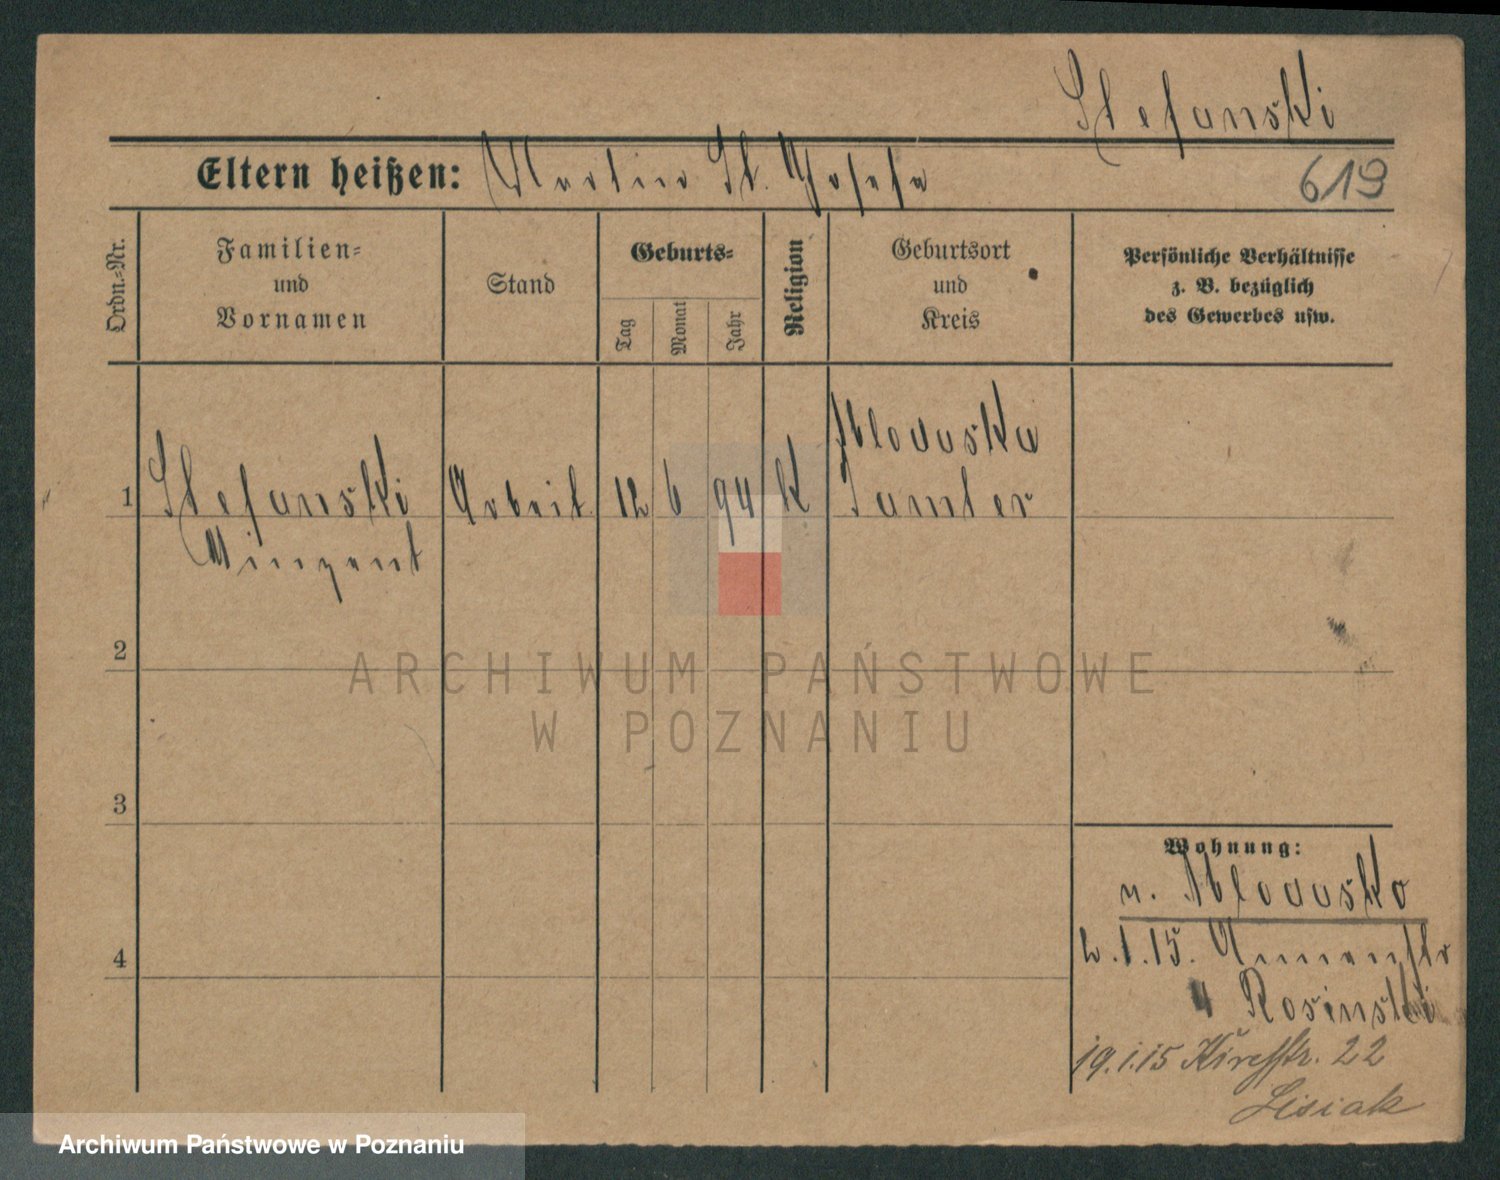 Stefanski
Eltern heißen: Martin St. Josefa
619
Ordn.=Nr.
Familien=
und
Vornamen
Stand
Geburts=
Tag
Monat
Jahr
Religion
Geburtsort
und
Kreis
Persönliche Verhältnisse
z. B. bezüglich
des Gewerbes usw.
1 Stefanski Arbeit. 12 6 94 K Mlodasko
Samter
Vinzent
2
3
4
Wohnung:
n. Mlodasko
2.1.15.
4 Rosinski
19.1.15 22
Lisiak
ARCHIWUM PAŃSTWOWE
W POZNANIU
Archiwum Państwowe w Poznaniu